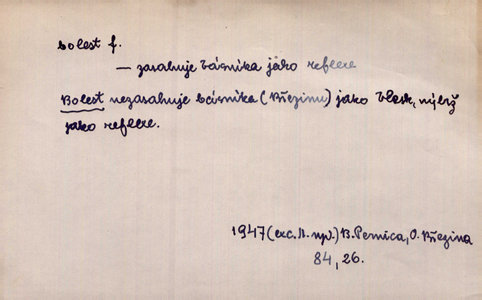 bolest f.
— zasahuje básníka jako reflexe
Bolest nezasahuje básníka (Březinu) jako blesk, nýbrž
jako reflexe.
1947 (exc. n. npv.) B. Pernica, O. Březina
84, 26.